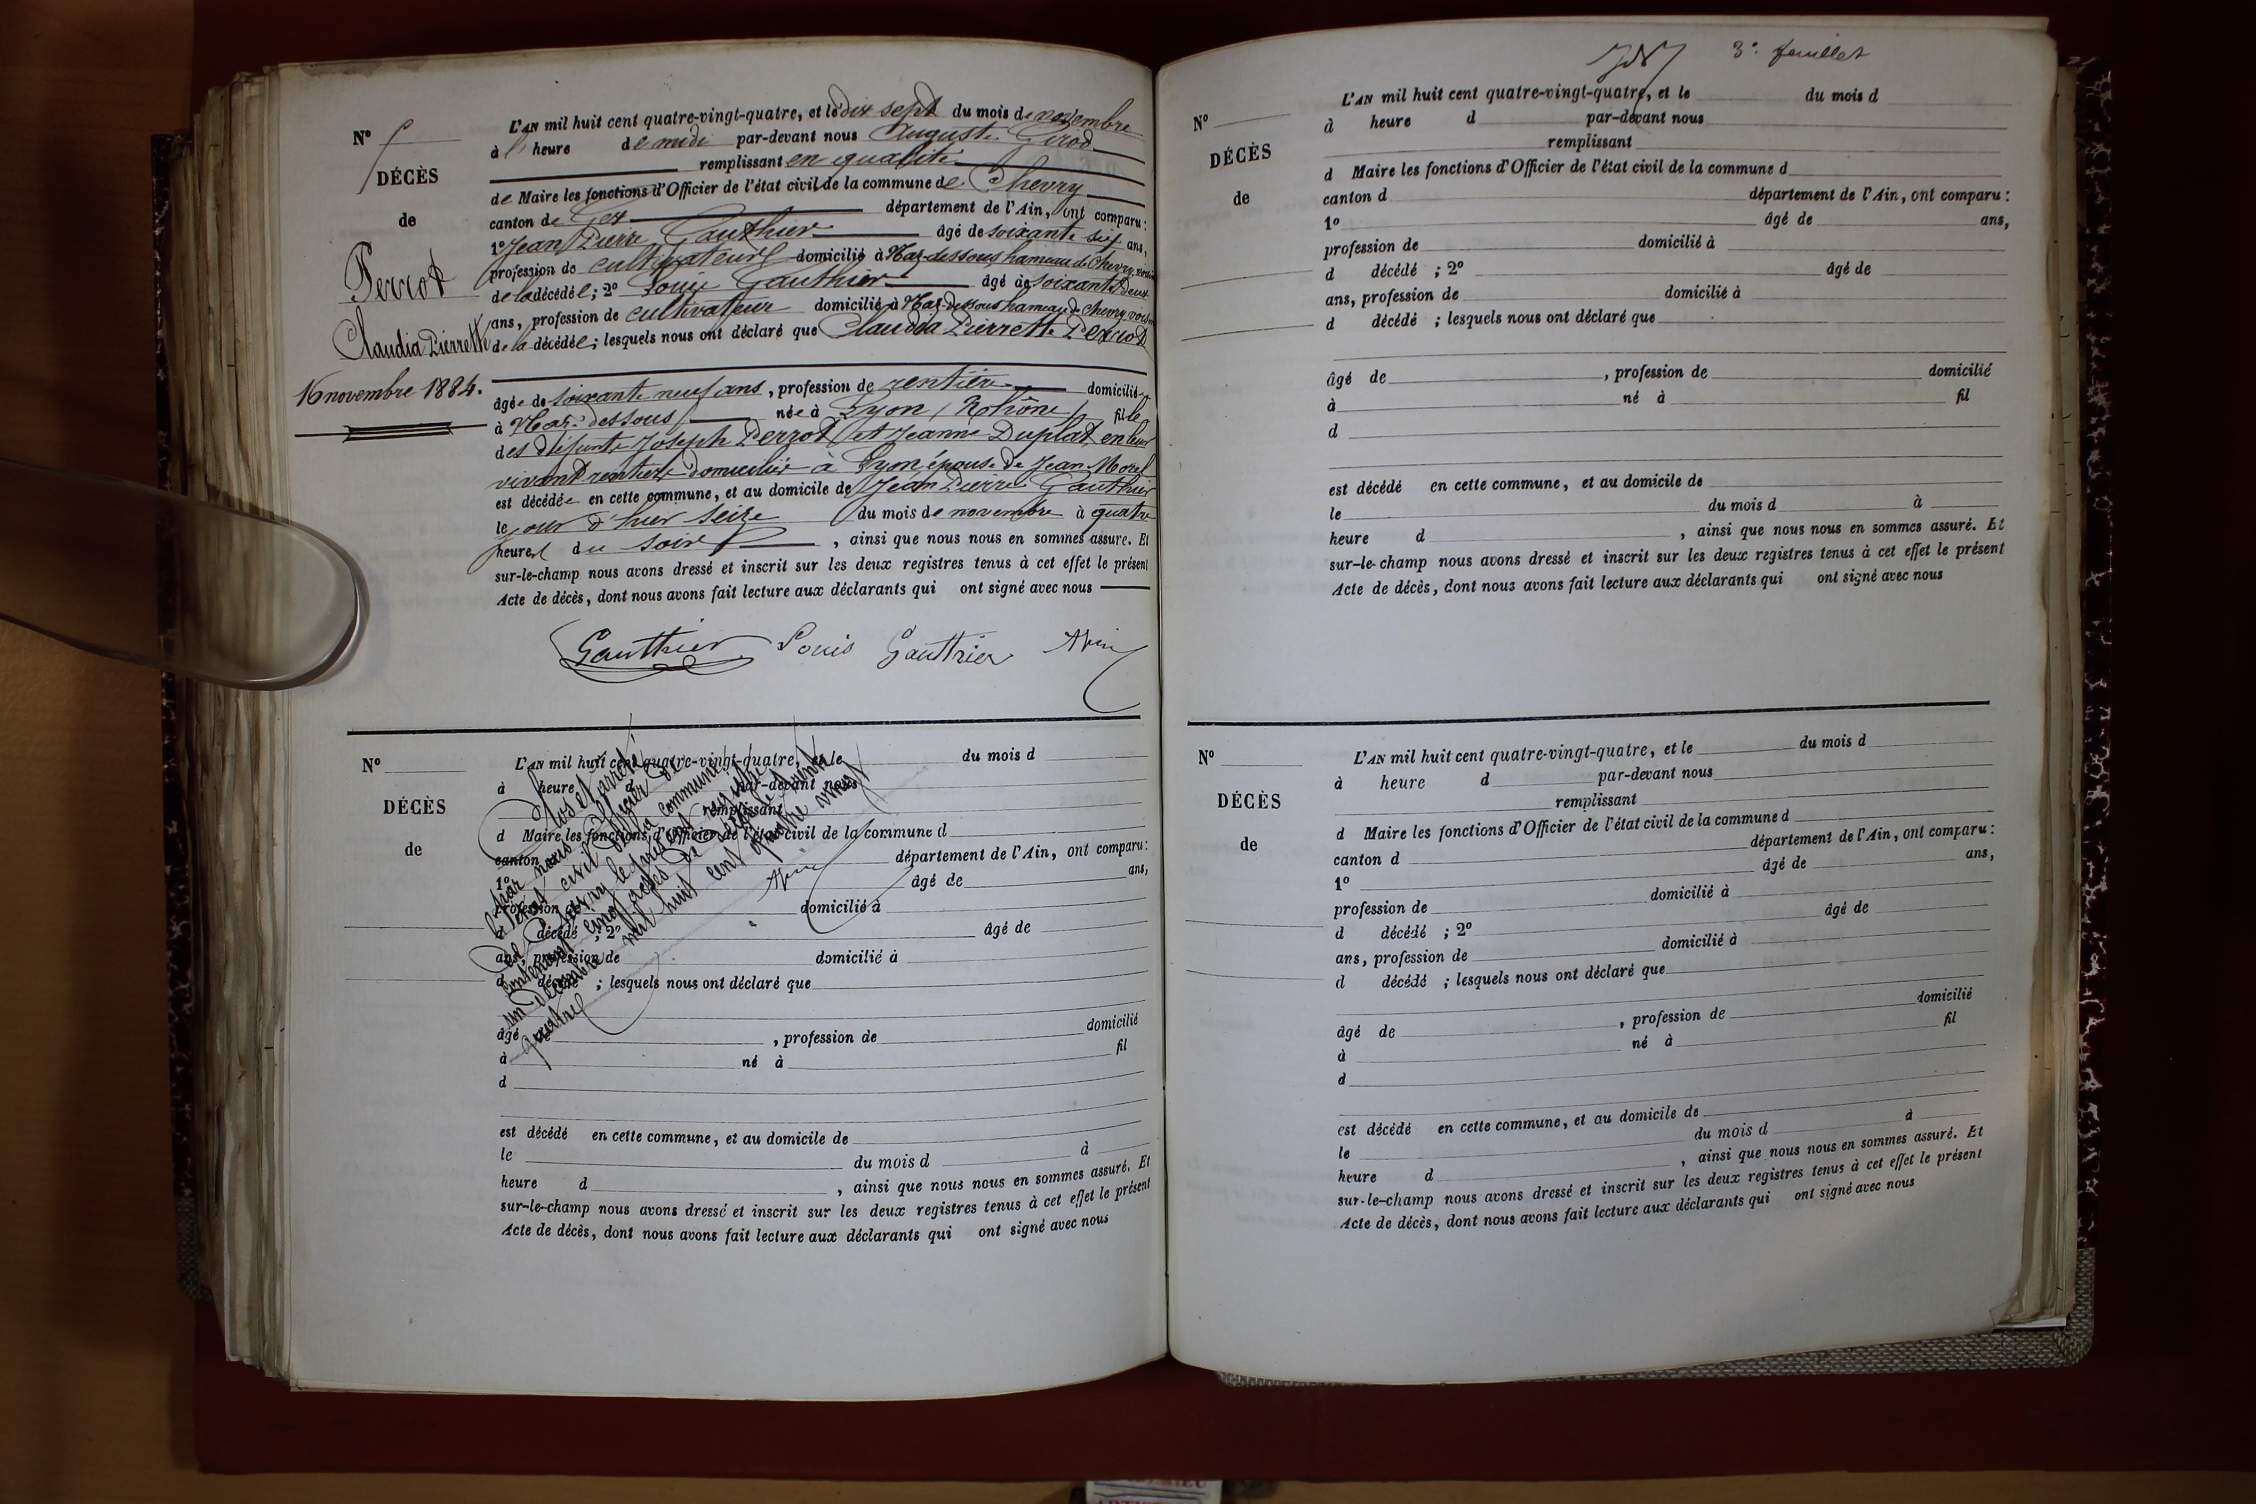 N° 5
DÉCÈS
de
Perrot
Claudia Pierrette
16 novembre 1884.
L'AN mil huit cent quatre-vingt-quatre, et le dix sept du mois de novembre
à l' heure de midi par-devant nous Auguste Girod
remplissant en qualité
de Maire les fonctions d'Officier de l'état civil de la commune de Chevry
canton de Gex département de l'Ain, ont comparu :
1° Jean Pierre Gauthier âgé de soixante six ans,
profession de cultivateur domicilié à Naz-dessous hameau de Chevry, voisin
de la décédée ; 2° Louis Gauthier âgé de soixante deux
ans, profession de cultivateur domicilié à Naz-dessous hameau de Chevry, voisin
de la décédée ; lesquels nous ont déclaré que Claudia Pierrette Perrot
âgée de soixante neuf ans, profession de rentière domiciliée
à Naz-dessous née à Lyon (Rohône) fille
des défunts Joseph Perrot et Jeanne Duplat, en leur
vivant rentiers domiciliés à Lyon, épouse de Jean Morel
est décédée en cette commune, et au domicile de Jean Pierre Gauthier
le jour d'hier seize du mois de novembre à quatre
heures du soir, ainsi que nous nous en sommes assuré. Et
sur-le-champ nous avons dressé et inscrit sur les deux registres tenus à cet effet le présent
Acte de décès, dont nous avons fait lecture aux déclarants qui ont signé avec nous
Gauthier Louis Gauthier
N°
DÉCÈS
de
L'AN mil huit cent quatre-vingt-quatre, et le du mois d
à heure d par-devant nous
remplissant
d Maire les fonctions d'Officier de l'état civil de la commune d
canton d département de l'Ain, ont comparu :
1° âgé de ans,
profession de domicilié à
d décédé ; 2° âgé de
ans, profession de domicilié à
d décédé ; lesquels nous ont déclaré que
âgé de , profession de domicilié
à né à fil
d
est décédé en cette commune, et au domicile de
le du mois d à
heure d , ainsi que nous nous en sommes assuré. Et
sur-le-champ nous avons dressé et inscrit sur les deux registres tenus à cet effet le présent
Acte de décès, dont nous avons fait lecture aux déclarants qui ont signé avec nous
Clos et arrêté
par nous Officier de
l'état civil de la commune
de Chevry le présent registre
contenant cinq actes de décès le trente
un Décembre mil huit cent quatre vingt
quatre
3e feuillet
N°
DÉCÈS
de
L'AN mil huit cent quatre-vingt-quatre, et le du mois d
à heure d par-devant nous
remplissant
d Maire les fonctions d'Officier de l'état civil de la commune d
canton d département de l'Ain, ont comparu :
1° âgé de ans,
profession de domicilié à
d décédé ; 2° âgé de
ans, profession de domicilié à
d décédé ; lesquels nous ont déclaré que
âgé de , profession de domicilié
à né à fil
d
est décédé en cette commune, et au domicile de
le du mois d à
heure d , ainsi que nous nous en sommes assuré. Et
sur-le-champ nous avons dressé et inscrit sur les deux registres tenus à cet effet le présent
Acte de décès, dont nous avons fait lecture aux déclarants qui ont signé avec nous
N°
DÉCÈS
de
L'AN mil huit cent quatre-vingt-quatre, et le du mois d
à heure d par-devant nous
remplissant
d Maire les fonctions d'Officier de l'état civil de la commune d
canton d département de l'Ain, ont comparu :
1° âgé de ans,
profession de domicilié à
d décédé ; 2° âgé de
ans, profession de domicilié à
d décédé ; lesquels nous ont déclaré que
âgé de , profession de domicilié
à né à fil
d
est décédé en cette commune, et au domicile de
le du mois d à
heure d , ainsi que nous nous en sommes assuré. Et
sur-le-champ nous avons dressé et inscrit sur les deux registres tenus à cet effet le présent
Acte de décès, dont nous avons fait lecture aux déclarants qui ont signé avec nous